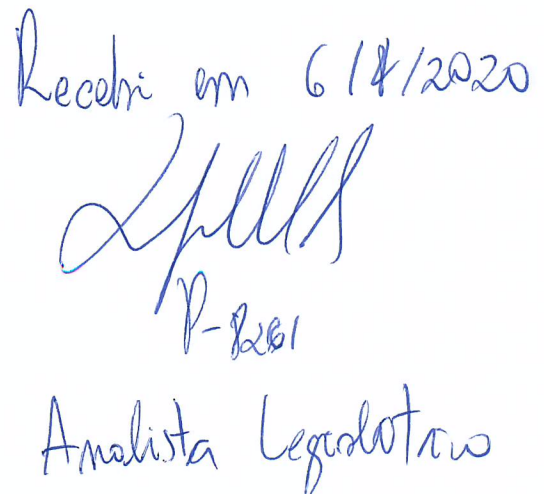 Recebi em 6/8/2020
P-8261
Analista Legislativo